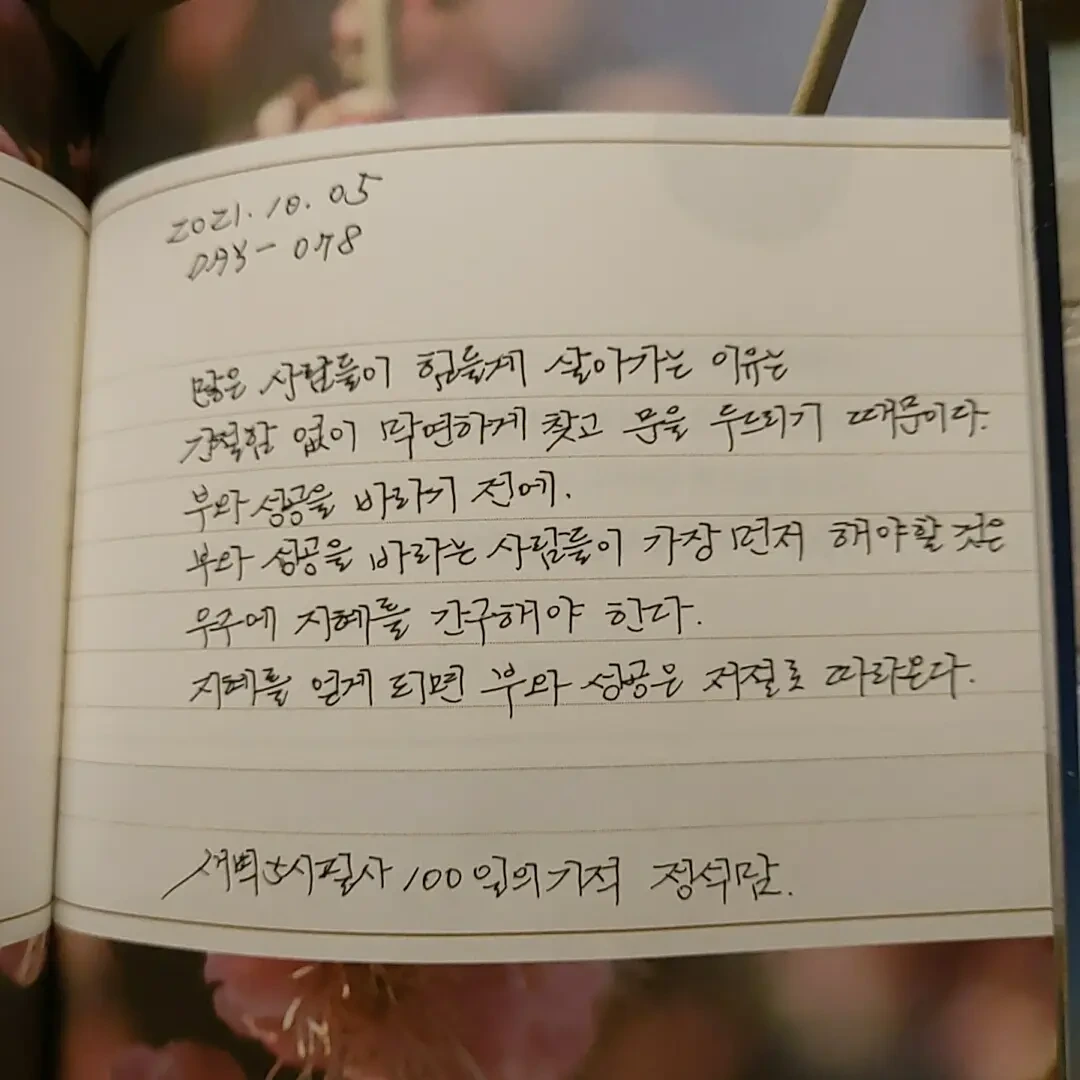 2021.10.05
DAY-078
많은 사람들이 힘들게 살아가는 이유는
간절함 없이 막연하게 찾고 문을 두드리기 때문이다.
부와 성공을 바라기 전에.
부와 성공을 바라는 사람들이 가장 먼저 해야할 것은
우주에 지혜를 간구해야 한다.
지혜를 얻게 되면 부와 성공은 저절로 따라온다.
새벽5시필사 100일의기적 정석맘.